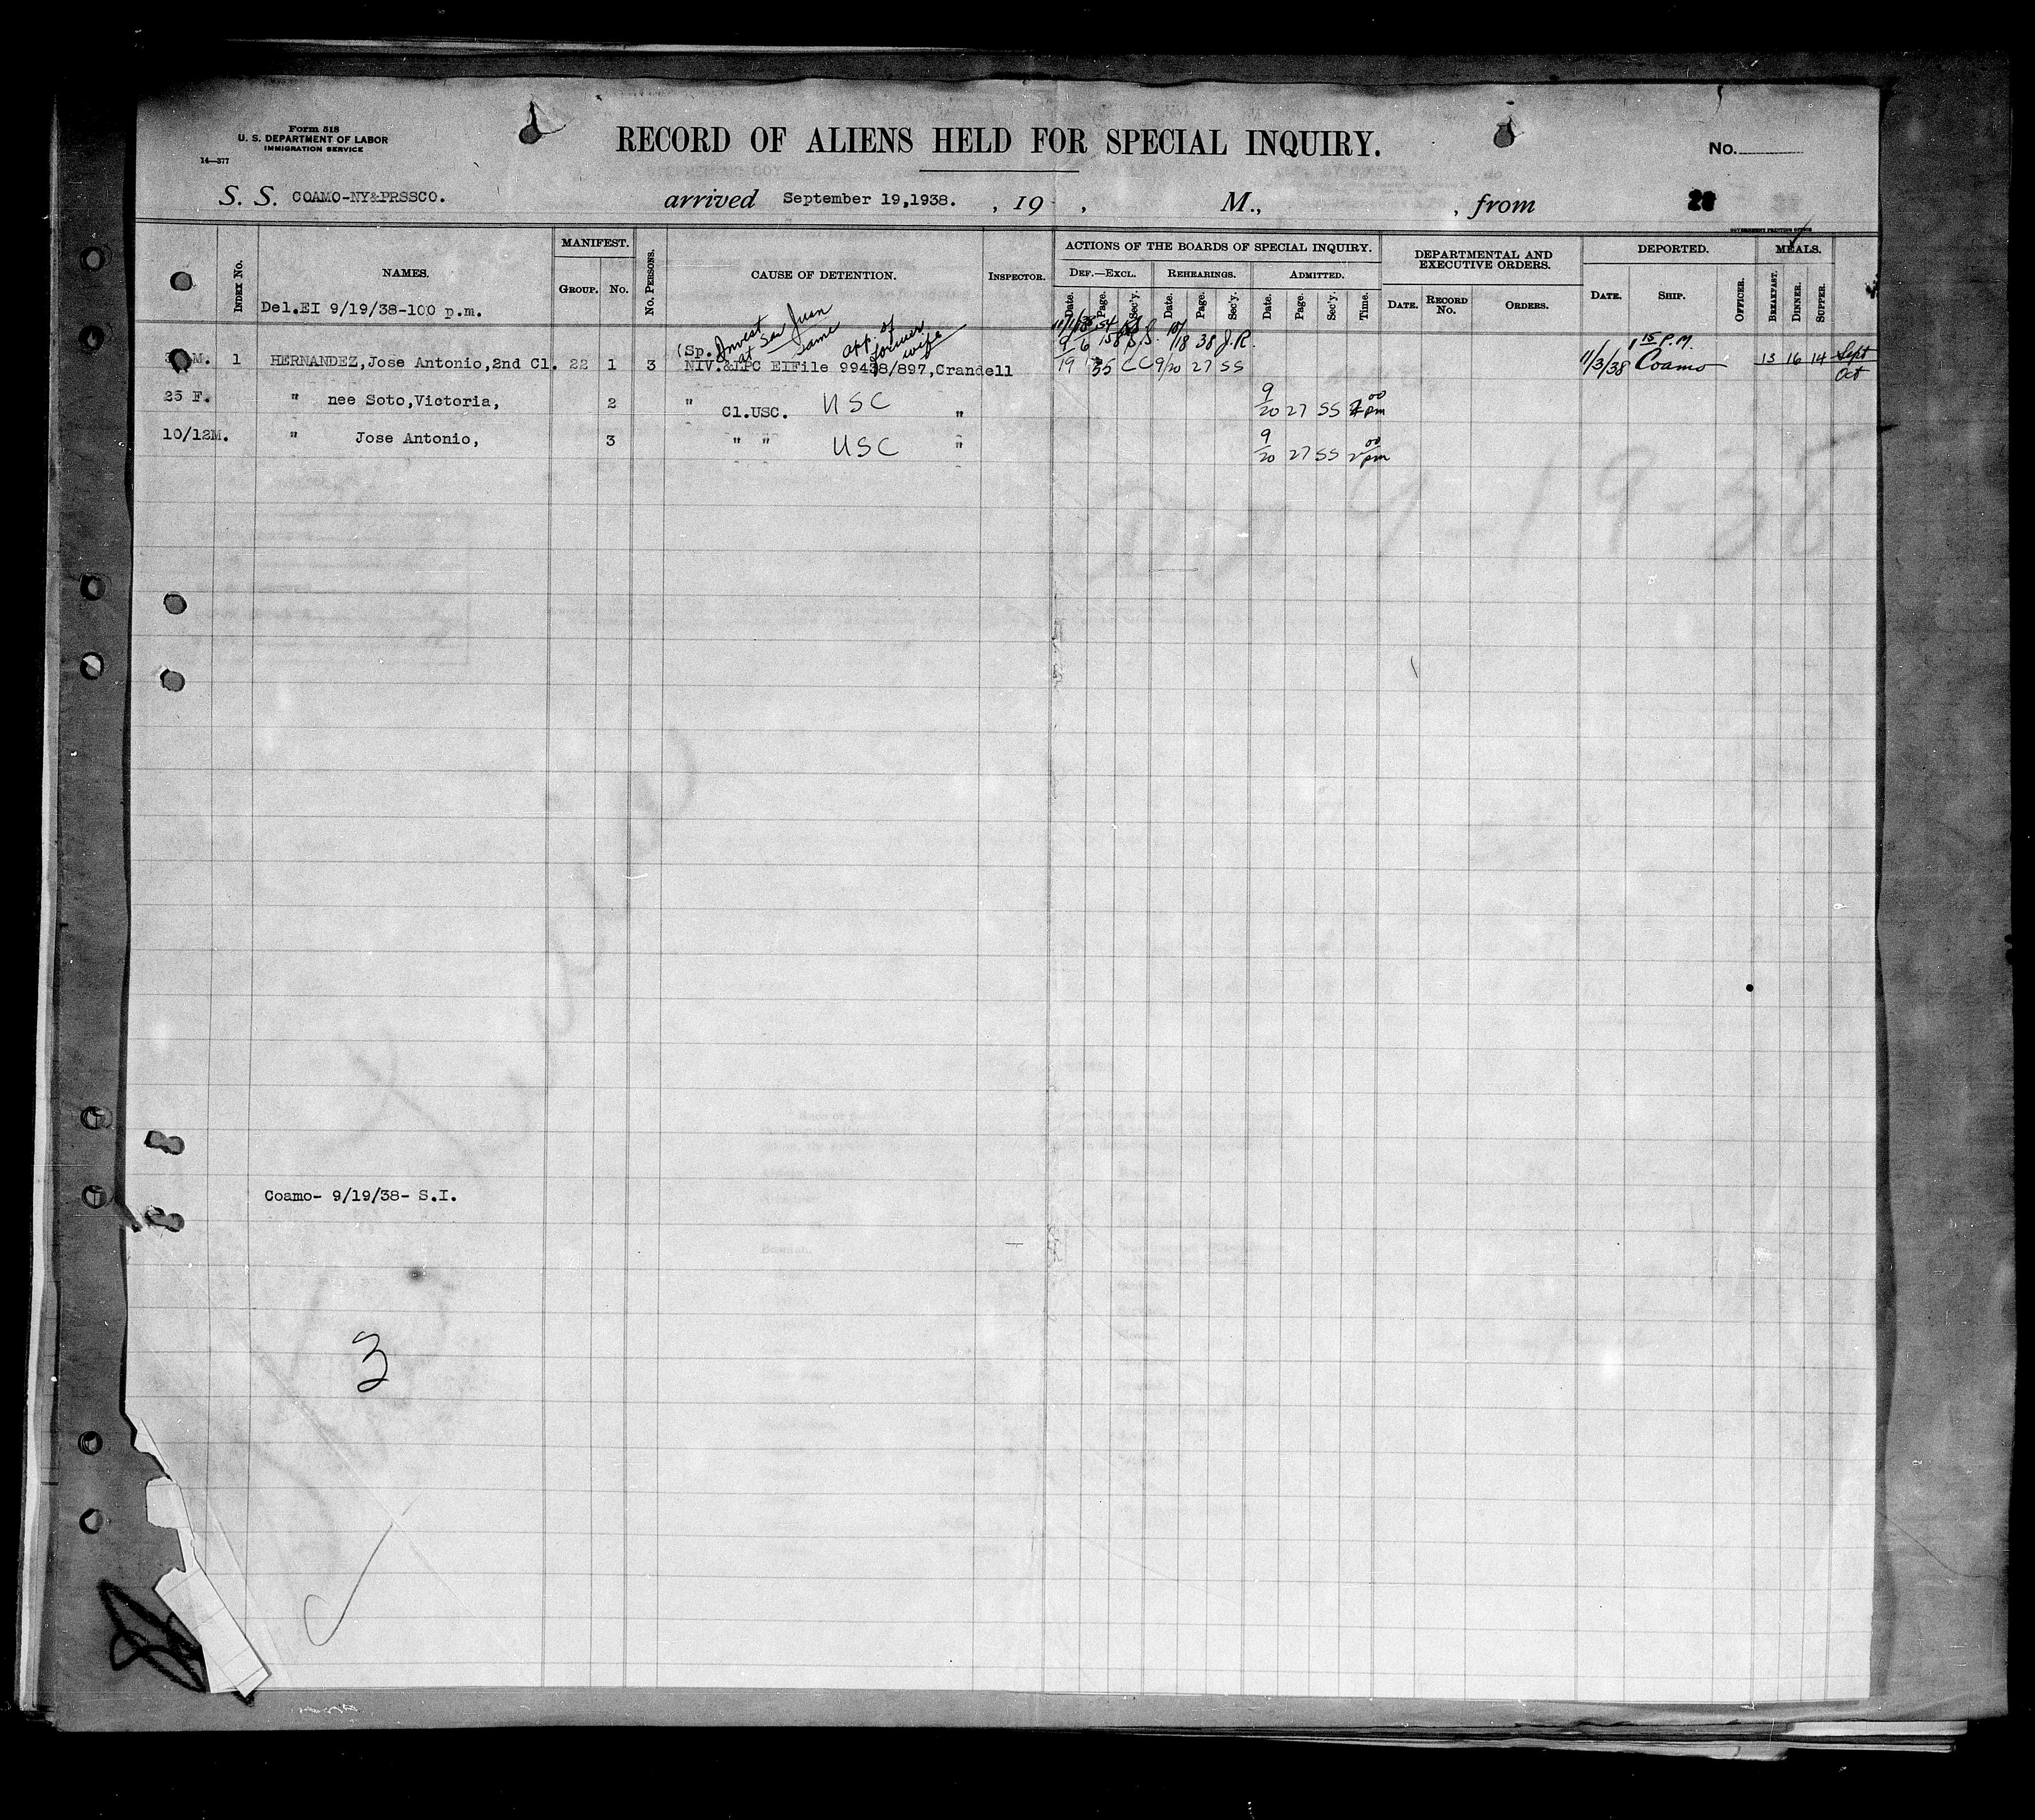 Form 518
U. S. DEPARTMENT OF LABOR
IMMIGRATION SERVICE
14—377
RECORD OF ALIENS HELD FOR SPECIAL INQUIRY.
No.
S. S. COAMO-NY&PRSSCO. arrived September 19,1938. , 19 , M., , from
GOVERNMENT PRINTING OFFICE
INDEX No. NAMES. MANIFEST. GROUP. No. No. PERSONS. CAUSE OF DETENTION. INSPECTOR.
ACTIONS OF THE BOARDS OF SPECIAL INQUIRY.
DEF.—EXCL. REHEARINGS. ADMITTED.
Date. Page. Sec'y. Date. Page. Sec'y. Date. Page. Sec'y. Time.
DEPARTMENTAL AND EXECUTIVE ORDERS.
DATE. RECORD No. ORDERS.
DEPORTED.
DATE. SHIP. OFFICER.
MEALS.
BREAKFAST. DINNER. SUPPER.
Del.EI 9/19/38-100 p.m.
(Sp. Invest at San Juan same app. of former wife
158 S.S. 10/18 38 J.R. 1 15 P.M.
M. 1 HERNANDEZ,Jose Antonio,2nd Cl. 22 1 3 NIV.&LPC EIFile 99438/897,Crandell 9/19 35 CC 9/20 27 SS 11/3/38 Coamo 13 16 14 Sept Oct
25 F. " nee Soto,Victoria, 2 " Cl.USC. USC " 9/20 27 SS 2 00 pm
10/12M. " Jose Antonio, 3 " " USC " 9/20 27 SS 2 00 pm
Coamo- 9/19/38- S.I.
3